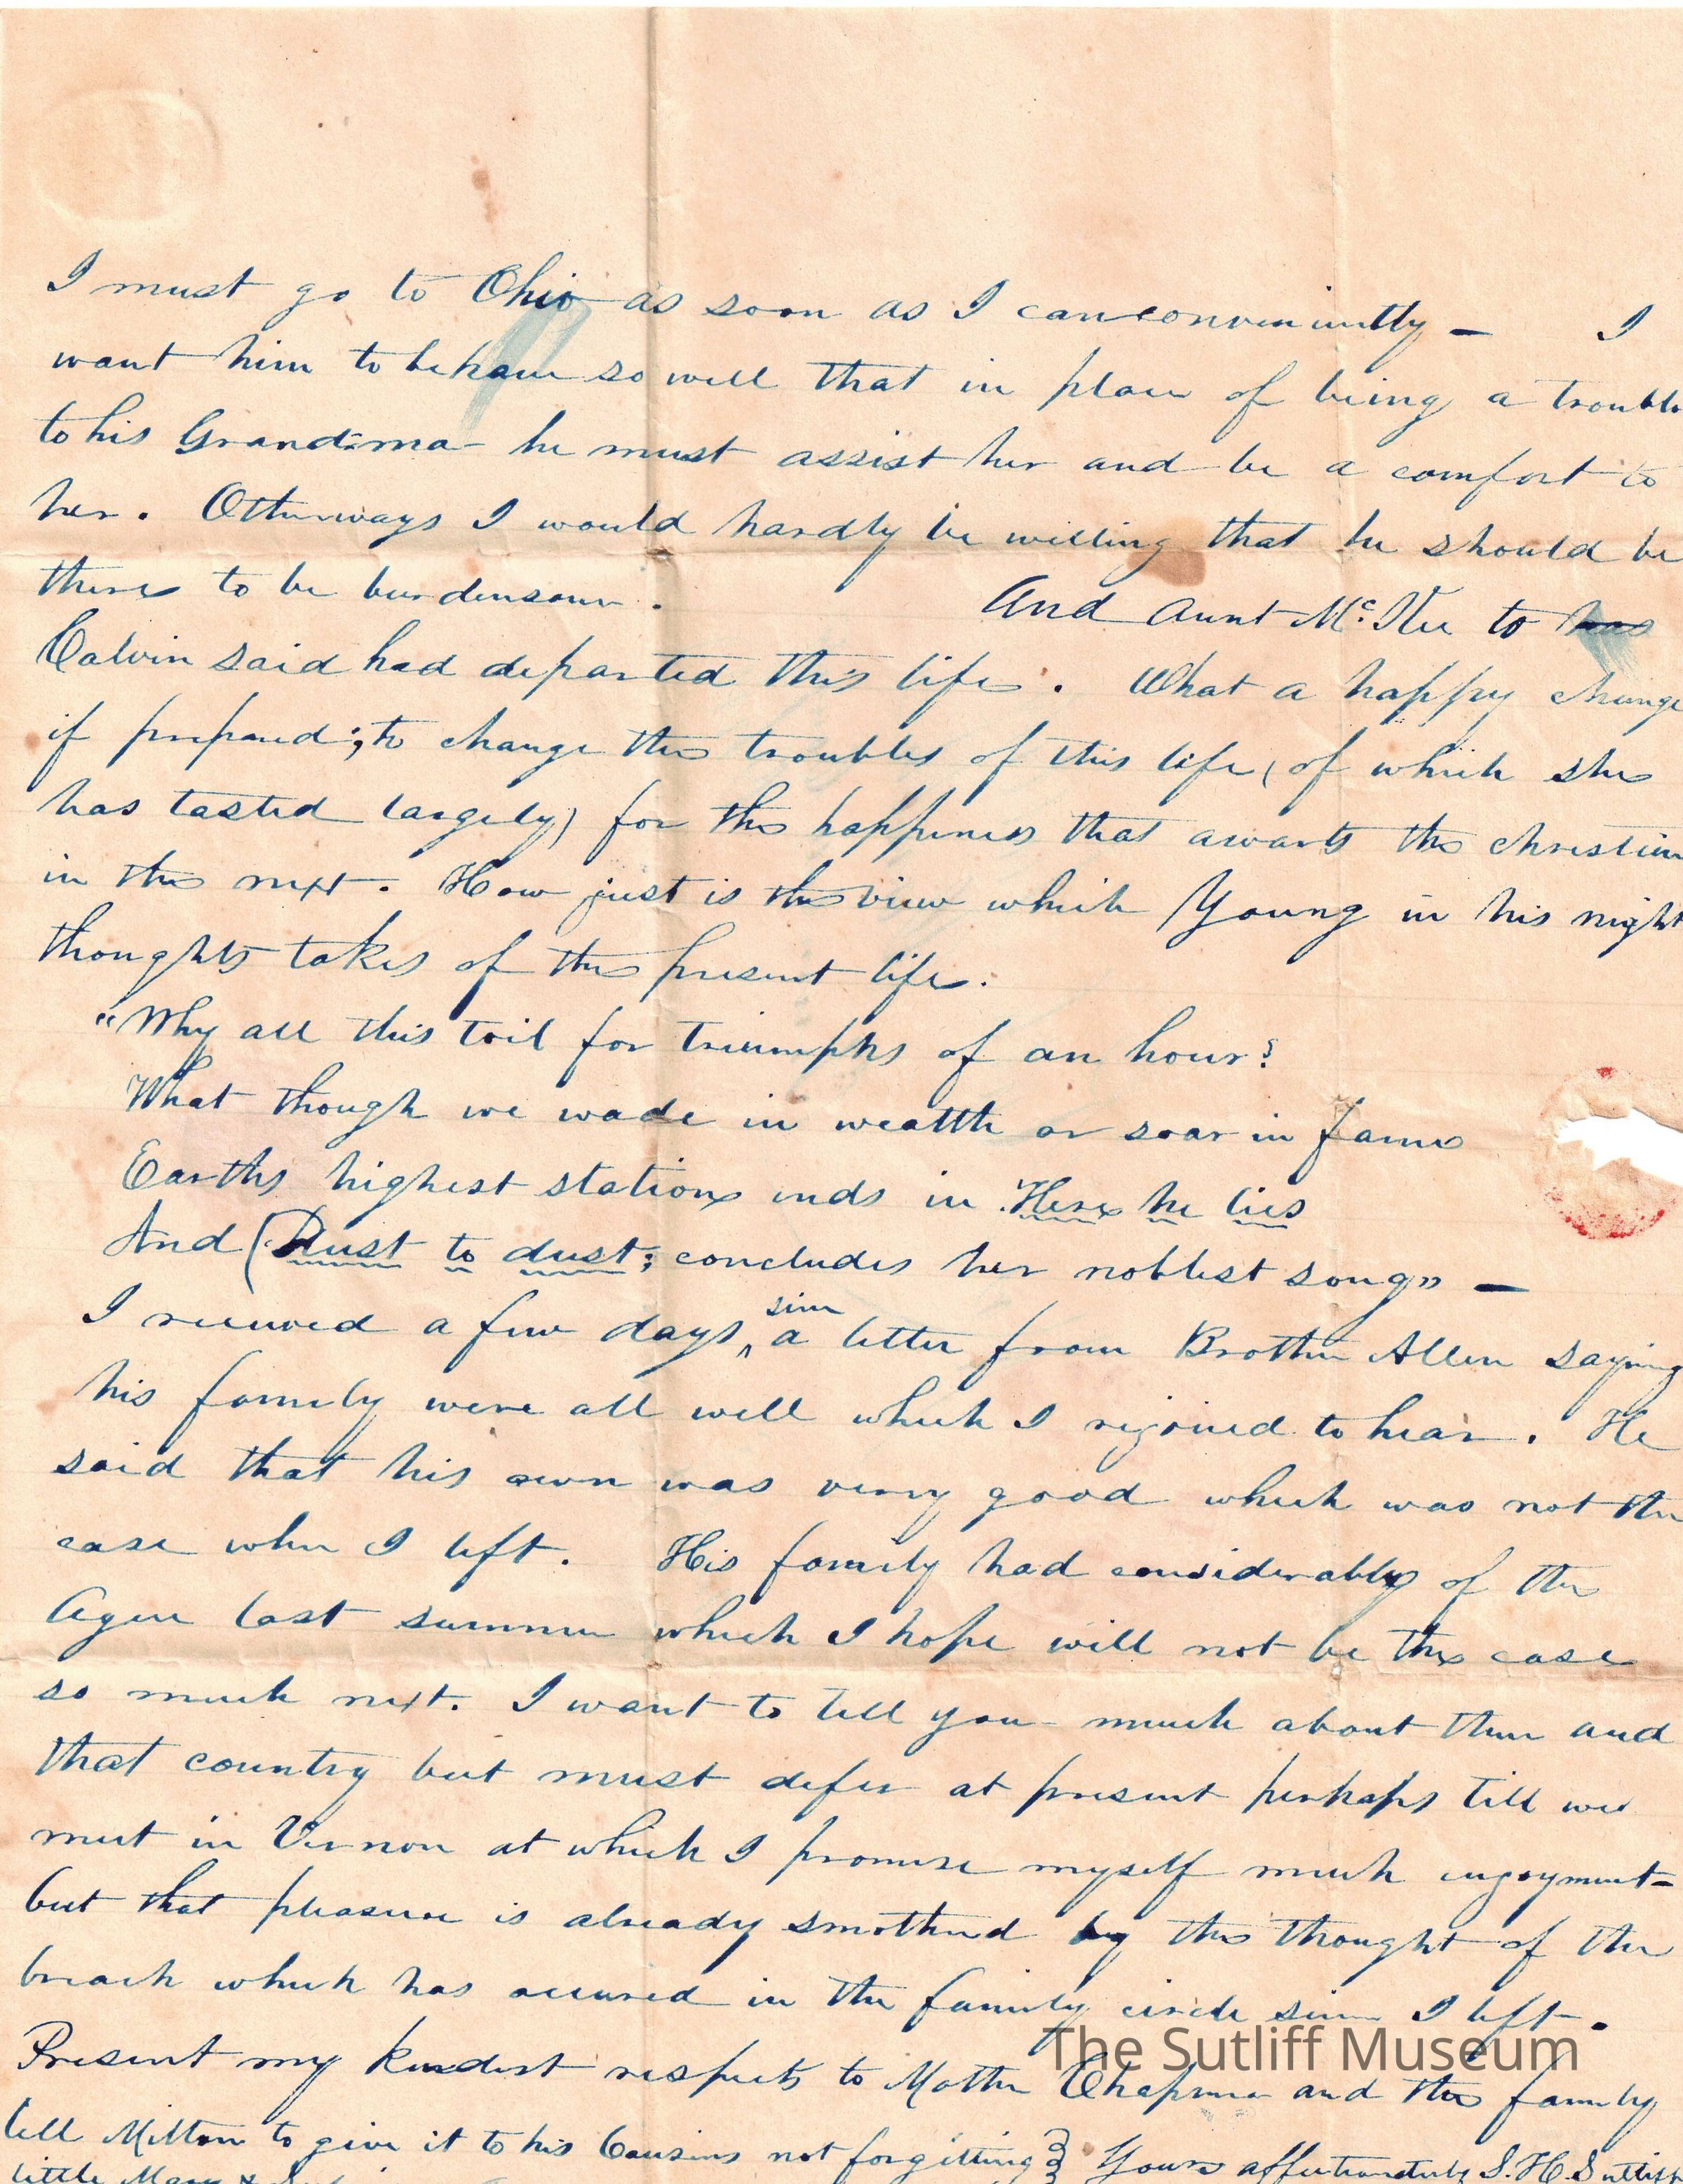 I must go to Ohio as soon as I can conveniently — I
want him to behave so well that in place of being a trouble
to his Grand-ma he must assist her and be a comfort to
her. Otherways I would hardly be willing that he should be
there to be burdensome. And Aunt Mc.Kee to has
Calvin said had departed this life. What a happy change
if prepared; to change the troubles of this life, (of which she
has tasted largely) for the happiness that awaits the christian
in the next. How just is the view which Young in his night
thoughts takes of the present life.
"Why all this toil for triumphs of an hour?
What though we wade in wealth or soar in fame
Earths highest station ends in Here he lies
And (Dust to dust; concludes her noblest song" —
I received a few days since a letter from Brother Allen saying
his family were all well which I rejoiced to hear. He
said that his own was very good which was not the
case when I left. His family had considerably of the
Ague last summer which I hope will not be the case
so much next. I want to tell you much about them and
that country but must defer at present perhaps till we
meet in Vernon at which I promise myself much enjoyment-
but that pleasure is already smothered by the thought of the
breach which has occured in the family circle since I left.
Present my kindest respects to Mother Chapman and the family
tell Milton to give it to his Cousins not forgetting } Yours affectionately S. H. Sutliff
little Mary &
The Sutliff Museum